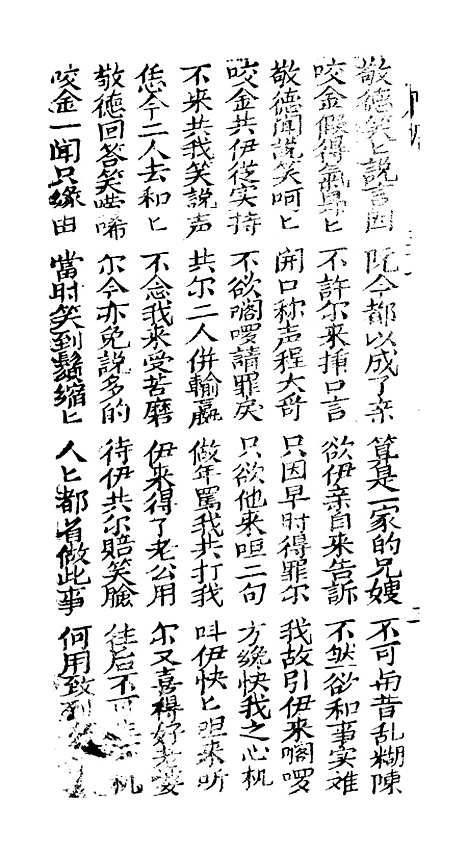 敬德笑匕說言因 既今都以成了亲 算是一家的兄嫂 不可与昔乱糊陳
咬金假得氣鼻匕 不許尔来揷口言 欲伊亲自来告訴 不然欲和事实难
敬德闻說笑呵匕 開口称声程大哥 只因早时得罪尔 我故引伊来嗬啰
咬金共伊從实持 不欲嗬啰請罪戾 只欲他来呾二句 方纔快我之心机
不来共我笑說声 共尔二人併輸贏 做年罵我共打我 呌伊快匕呾来听
恁今二人去和匕 不念我来受苦磨 伊来得了老公用 尔又嘉得好老婆
敬德回答笑嘻 尔今亦免說多的 待伊共尔賠笑臉 往后不可机
咬金一聞只缘由 當时笑到鬚縮匕 人匕都省做此事 何用致到